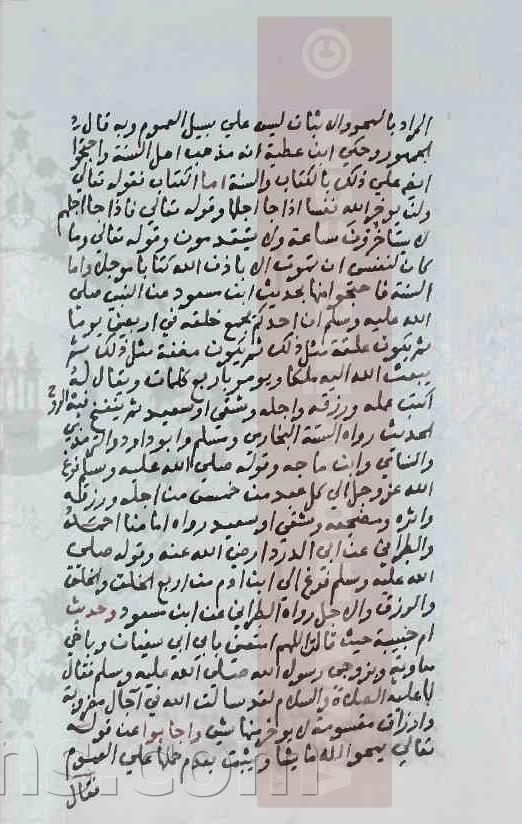 المراد بالمحو والاثبات ليس علي سبيل العموم وبه قال
الجمهور وحكي ابن عطية انه مذهب اهل السنة واحتجوا
ايضا علي ذلك بالكتاب والسنة اما الكتاب فقوله تعالي
ولن يوخر الله نفسا اذا جا اجلها وقوله تعالي فاذا جا اجلهم
لا يستاخرون ساعة ولا يستقدمون وقوله تعالي وما
كان لنفس ان تموت الا باذن الله كتابا موجلا واما
السنة فاحتجوا بحديث ابن مسعود عن النبي صلي
الله عليه وسلم ان احدكم يجمع خلقه في اربعين يوما
ثم يكون علقة مثل ذلك ثم يكون مضغة مثل ذلك ثم
يبعث الله اليه ملكا ويومر باربع كلمات ويقال له
اكتب عمله ورزقه واجله وشقي او سعيد ثم ينفخ فيه الروح
الحديث رواه الستة البخاري ومسلم وابو داود والترمذي
والنسائي وابن ماجه وقوله صلي الله عليه وسلم فرغ
الله عز وجل الي كل عبد من خمس من اجله ورزقه
واثره ومضجعه وشقي او سعيد رواه امامنا احمد
والطبراني عن ابي الدردا رضي الله عنه وقوله صلي
الله عليه وسلم فرغ الي ابن ادم من اربع الخلق والخلق
والرزق والاجل رواه الطبراني عن ابن مسعود وحديث
ام حبيبة حيث قالت اللهم امتعني بابي ابي سفيان وباخي
معاوية وبزوجي رسول الله صلي الله عليه وسلم فقال
لها عليه الصلاة والسلام لقد سالت الله في آجال مضروبة
وارزاق مقسومة لا يوخر منها شي واجابوا عن قوله
تعالي يمحوا الله ما يشا ويثبت بعدم حملها علي العموم
فقال
ns.com